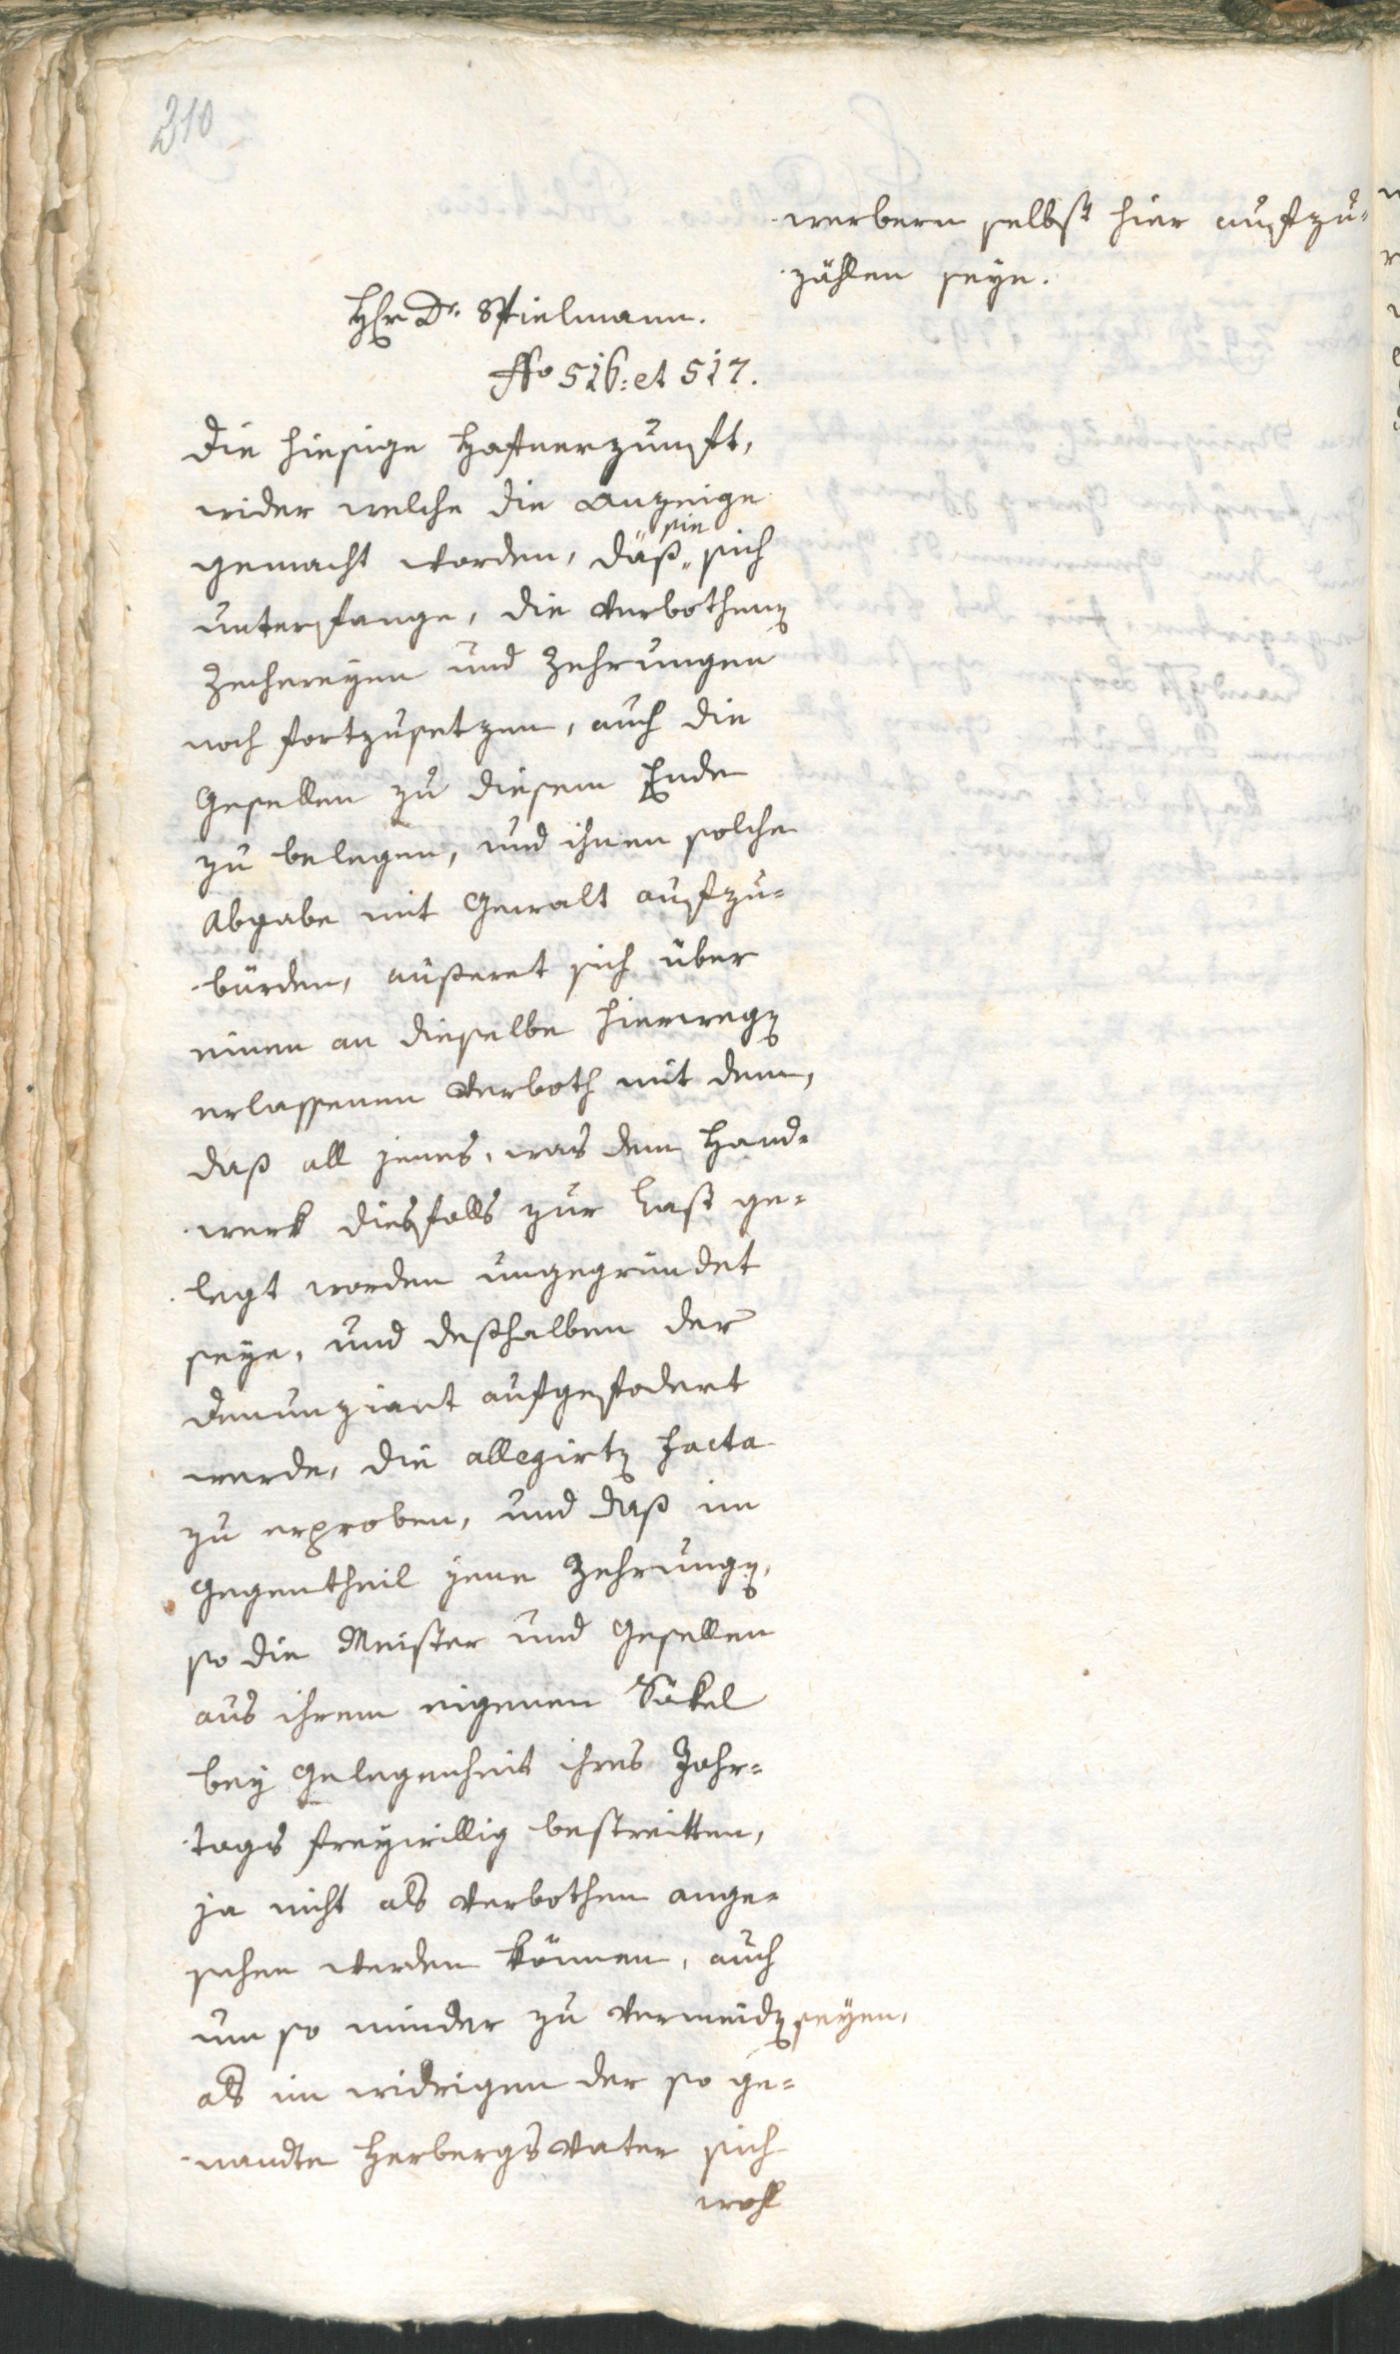 210
werbern selbst hier aufzu-
zählen seye.
Hr Dr. Spielmann.
Fo 516: et 517.
Die hiesige Hafnerzunft,
wider welche die Anzeige
gemacht worden, daß sie sich
unterfange, die verbothenen
Zechereyen und Zehrungen
noch fortzusetzen, auch die
Gesellen zu diesem Ende
zu belegen, und ihnen solche
Abgabe mit Gewalt aufzu-
bürden, äußeret sich über
einen an dieselbe hierwegen
erlassenen Verboth mit dem,
daß all jenes, was dem Hand-
werk diesfalls zur Last ge-
legt worden ungegründet
seye, und deßhalben der
Denunziant aufgefodert
werde, die allegirten Facta
zu erproben, und daß im
Gegentheil jene Zehrungen,
so die Meister und Gesellen
aus ihrem eigenen Säkel
bey Gelegenheit ihres Jahr-
tags freywillig bestreitten,
ja nicht als verbothen ange-
sehen werden können, auch
um so minder zu vermeiden seyen,
als im widrigen der so ge-
nandte Herbergsvater sich
wohl